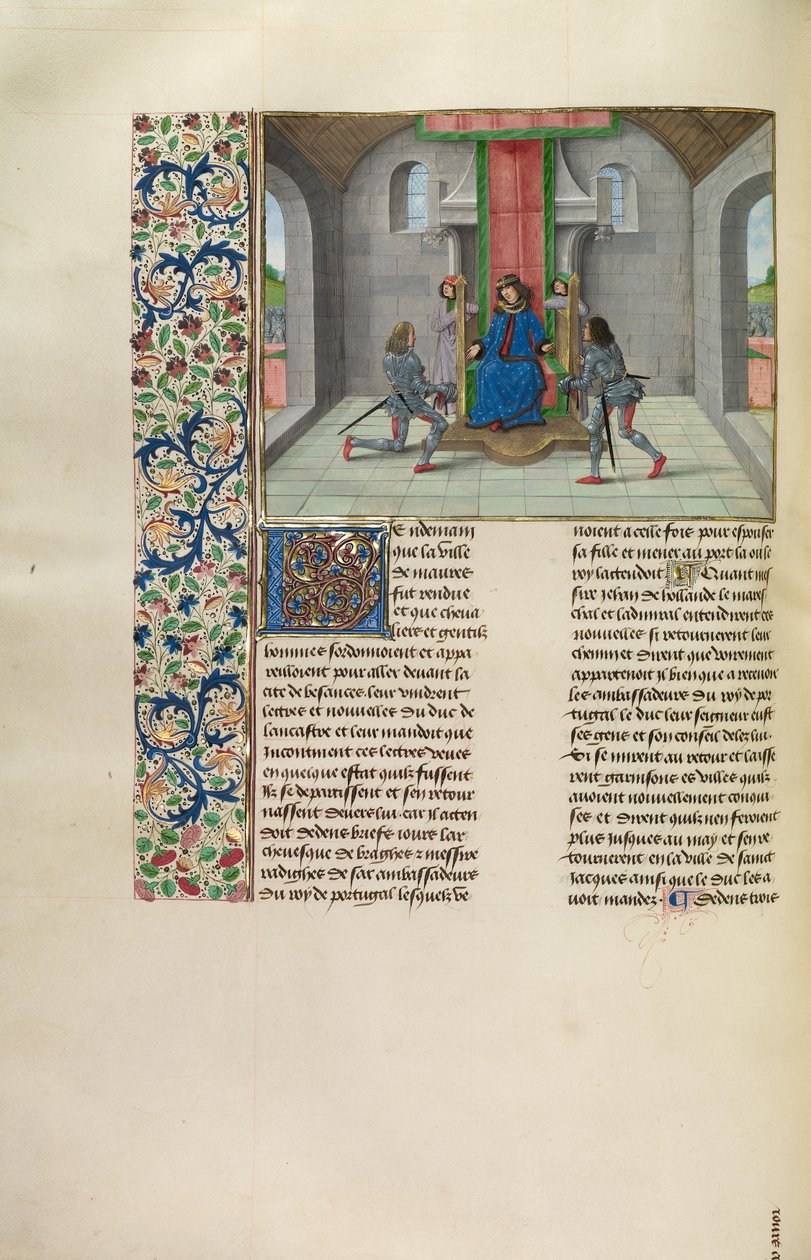 Lendemain
que la ville
de maures
fut rendue
et que cheva
liers et gentilz
hommes sordonnoient et appa
reilloient pour aller devant la
cite de besances leur vindrent
lettres et nouvelles du duc de
lancastre et leur mandoit que
Incontinent ces lettres veues
en quelque estat quilz fussent
Ilz se departissent et sen retour
nassent devers lui. car il atten
doit dedens briefz iours lar
chevesque de braghes & messire
radighes de sar ambassadeurs
du roy de portugal lesquelz ve
noient a celle fois pour espouser
sa fille et mener au port la ou le
roy lactendoit Quant mes
sire Jehan de hollande le mares
chal et ladmiral entendirent ces
nouvelles si retournerent leur
chemin et dirent que voirement
appartenoit Il bien que a recevoir
les ambassadeurs du roy de por
tugal le duc leur seigneur eust
ses gens et son conseil delez lui.
Si se mirent au retour et laisse
rent garnisons es villes quilz
avoient nouvellement conqui
ses et dirent quilz nen feroient
plus Jusques au may et sen re
tournerent en la ville de sainct
Jacques ainsi que le duc les a
voit mandez. Dedens trois